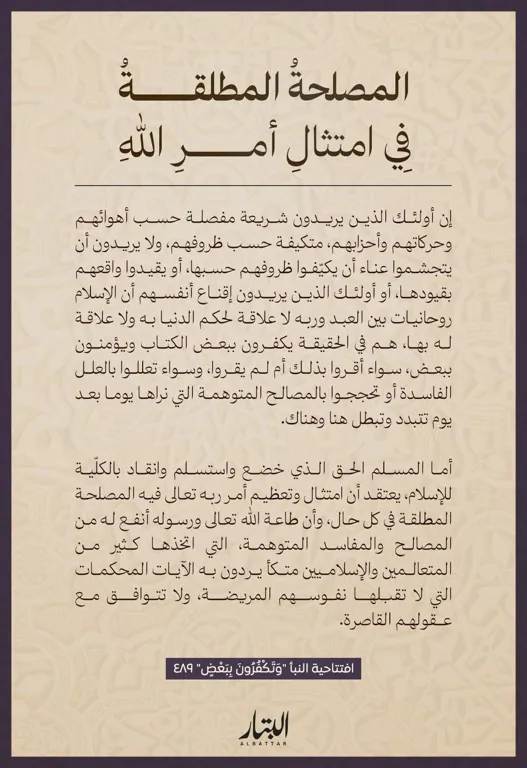 المصلحةُ المطلقـــــةُ
فِي امتثالِ أمـــــرِ اللهِ
إن أولئـك الذيـن يريـدون شـريعة مفصلـة حسـب أهوائهـم
وحركاتهـم وأحزابهـم، متكيفـة حسـب ظروفهـم، ولا يريـدون أن
يتجشمـوا عنـاء أن يكيّفـوا ظروفهـم حسبهـا، أو يقيـدوا واقعهـم
بقيودهـا، أو أولئـك الذيـن يريـدون إقنـاع أنفسـهم أن الإسلام
روحانيـات بين العبـد وربـه لا علاقـة لحكـم الدنيـا بـه ولا علاقـة
لـه بهـا، هـم في الحقيقـة يكفـرون ببعـض الكتـاب ويؤمنـون
ببعض، سـواء أقـروا بذلـك أم لـم يقـروا، وسـواء تعللـوا بالعلـل
الفاسـدة أو تحججـوا بالمصالـح المتوهمـة التي نراهـا يومـا بعـد
يوم تتبدد وتبطل هنا وهناك.
أمـا المسـلم الحـق الـذي خضـع واستسـلم وانقـاد بالكلّيـة
للإسلام، يعتقـد أن امتثـال وتعظيـم أمـر ربـه تعالى فيـه المصلحـة
المطلقة في كل حال، وأن طاعة الله تعالى ورسوله أنفع له من
المصالـح والمفاسـد المتوهمـة، التي اتخذهـا كـثير مـن
المتعالمين والإسلامـيين متكـأ يـردون بـه الآيـات المحكمـات
التي لا تقبلهـا نفوسـهم المريضـة، ولا تتوافـق مـع
عقولهم القاصرة.
افتتاحية النبأ "وَتَكْفُرُونَ بِبَعْضٍ" ٤٨٩
البتار
ALBATTAR